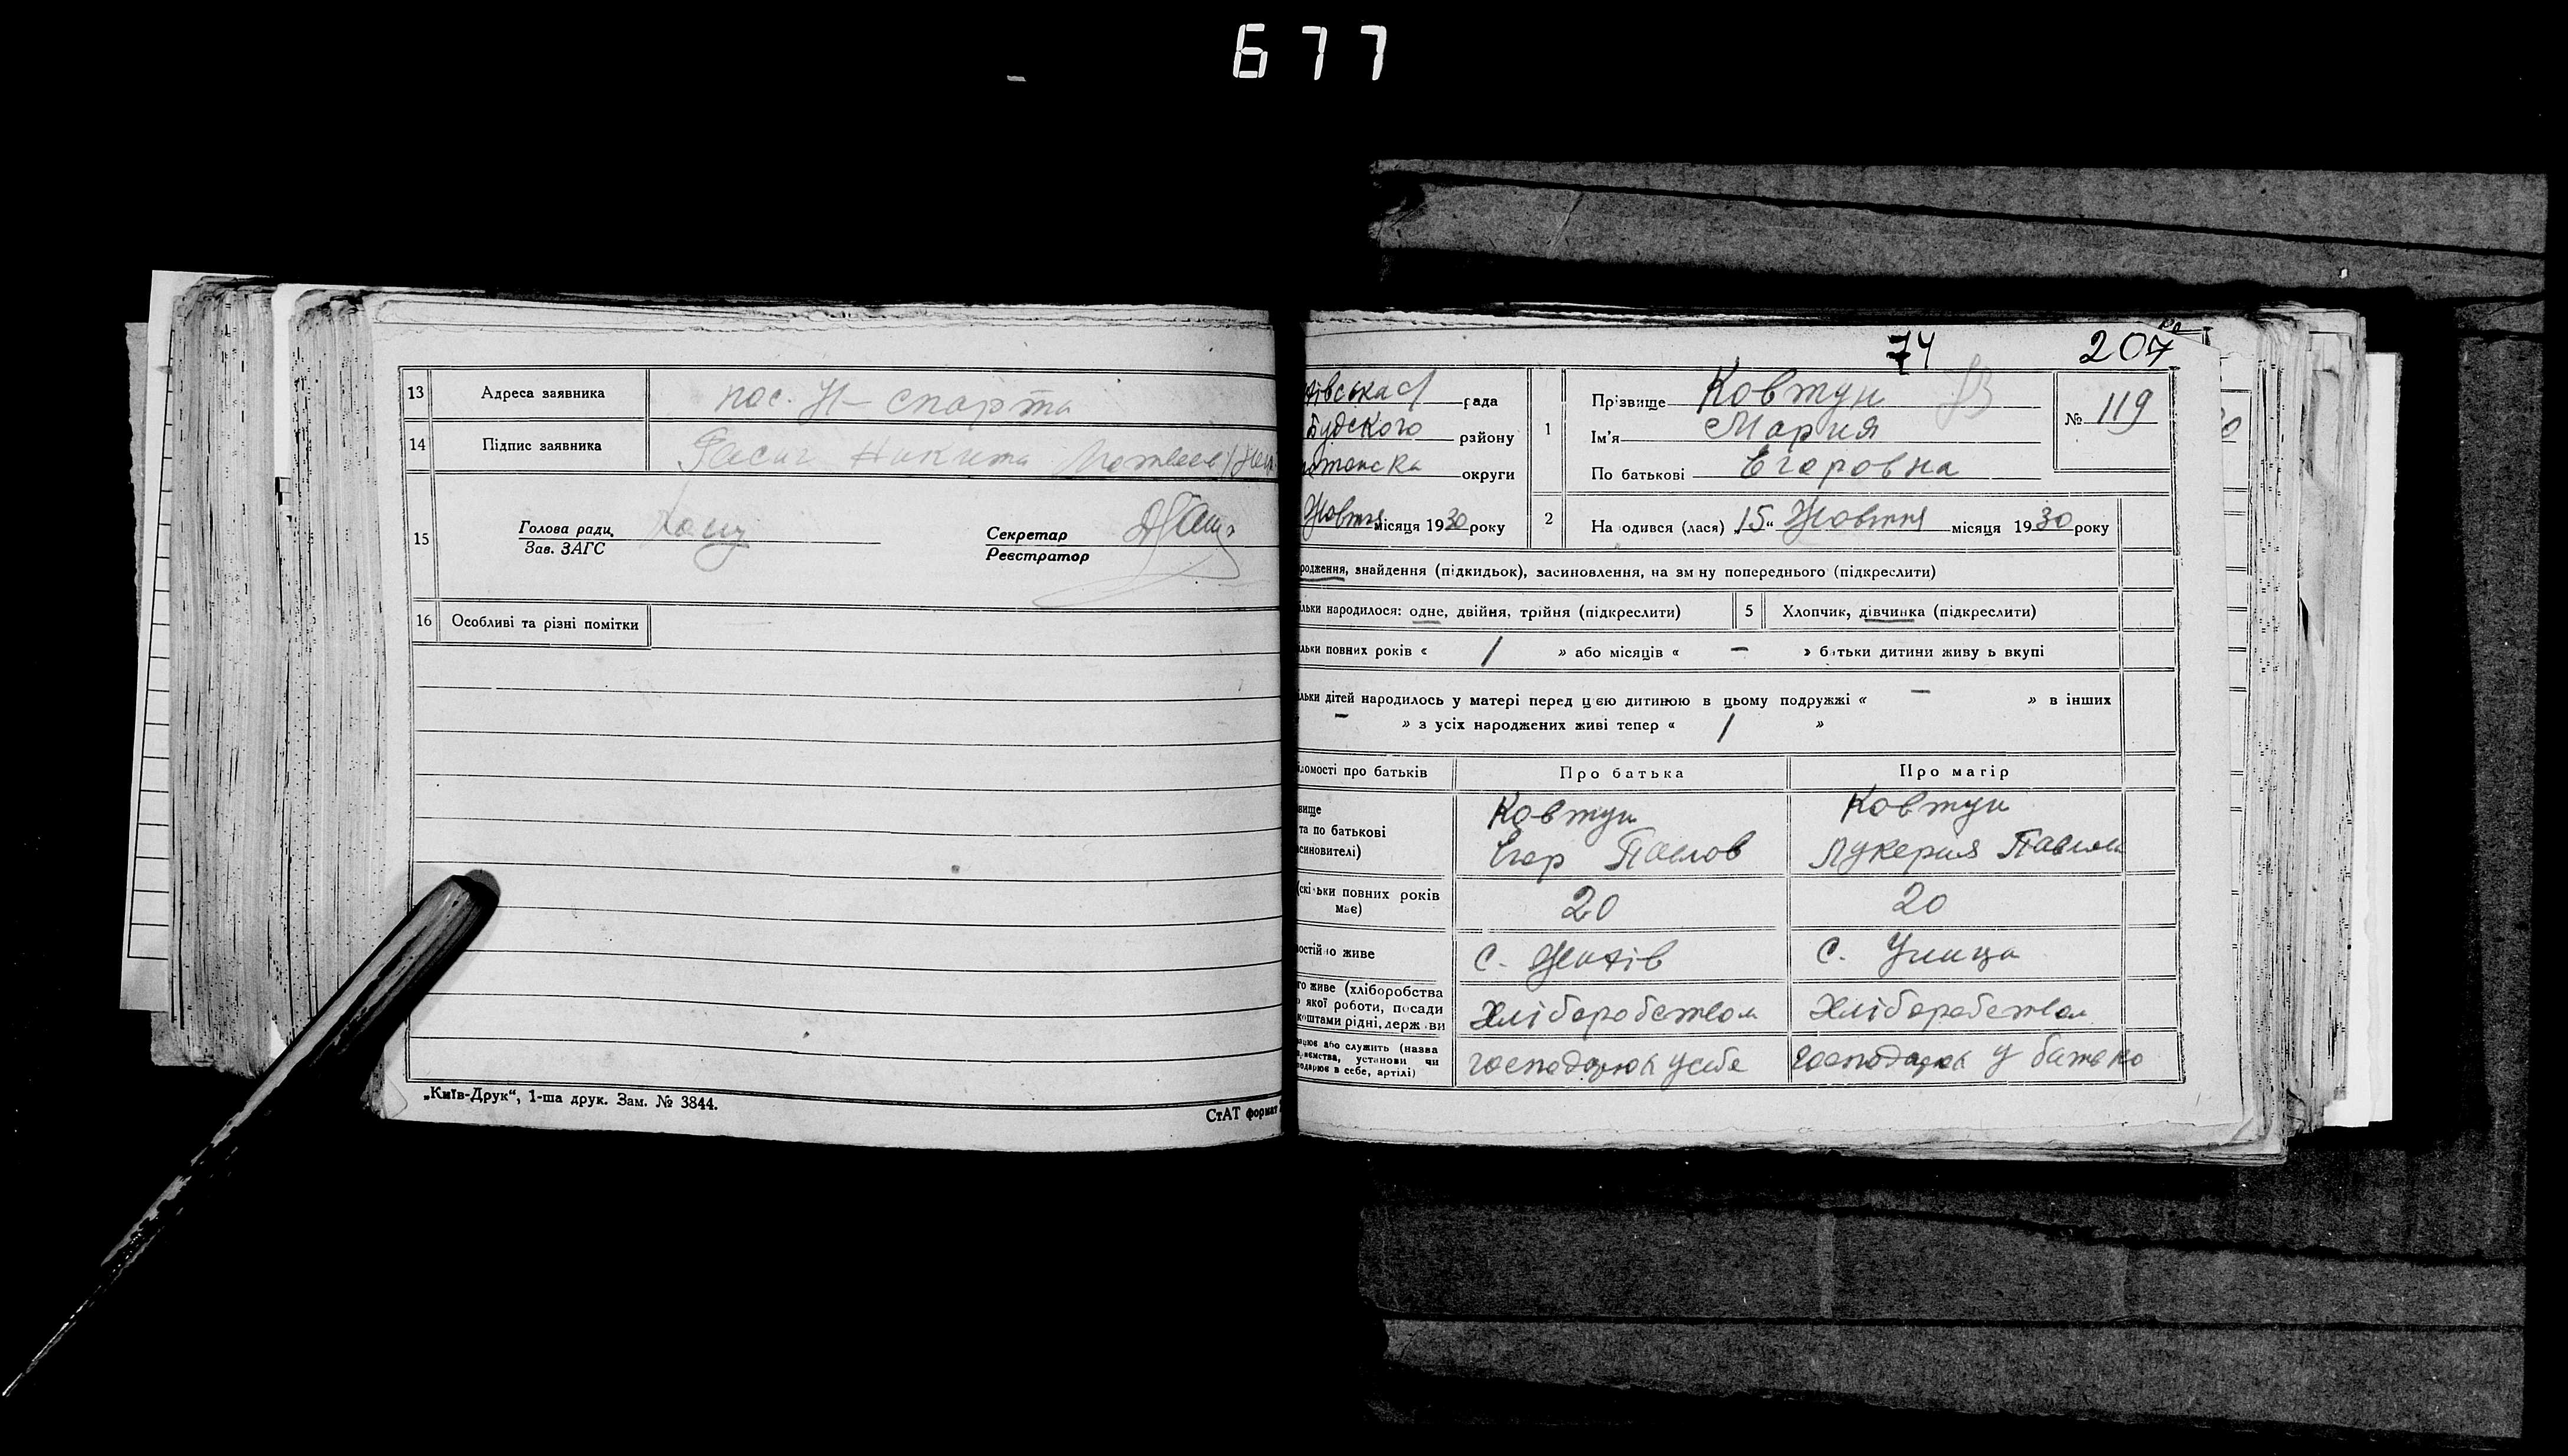 677
13 Адреса заявника пос. Н-спарта
14 Підпис заявника Никита
15 Голова ради
Зав. ЗАГС
Секретар
Реєстратор
16 Особливі та різні помітки
„Київ-Друк“, 1-ша друк. Зам. № 3844.
СтАТ формат
74 207
івська с/ рада
Будского району
округи
Жовтня місяця 1930 року
1 Прізвище Ковтун
Ім'я Мария
По батькові Егоровна
№ 119
2 На одився (лася) „15“ Жовтня місяця 1930 року
родження, знайдення (підкидьок), засиновлення, на зм ну попереднього (підкреслити)
ільки народилося: одне, двійня, трійня (підкреслити) 5 Хлопчик, дівчинка (підкреслити)
льки повних років « / » або місяців « – » батьки дитини живу ь вкупі
ільки дітей народилось у матері перед цією дитиною в цьому подружжі « – » в інших
– » з усіх народжених живі тепер « / »
домості про батьків Про батька Про матір
вище
та по батькові
синовителі)
Ковтун
Егор Павлов
Ковтун
Лукерия
(скільки повних років
має)
20 20
остійно живе с. с. Улица
го живе (хліборобства
якої роботи, посади
коштами рідні, держ ви
Хліборобством Хліборобством
ацює або служить (назва
ємства, установи чи
подарює в себе, артілі)
господарюк усебе господарюк у батько